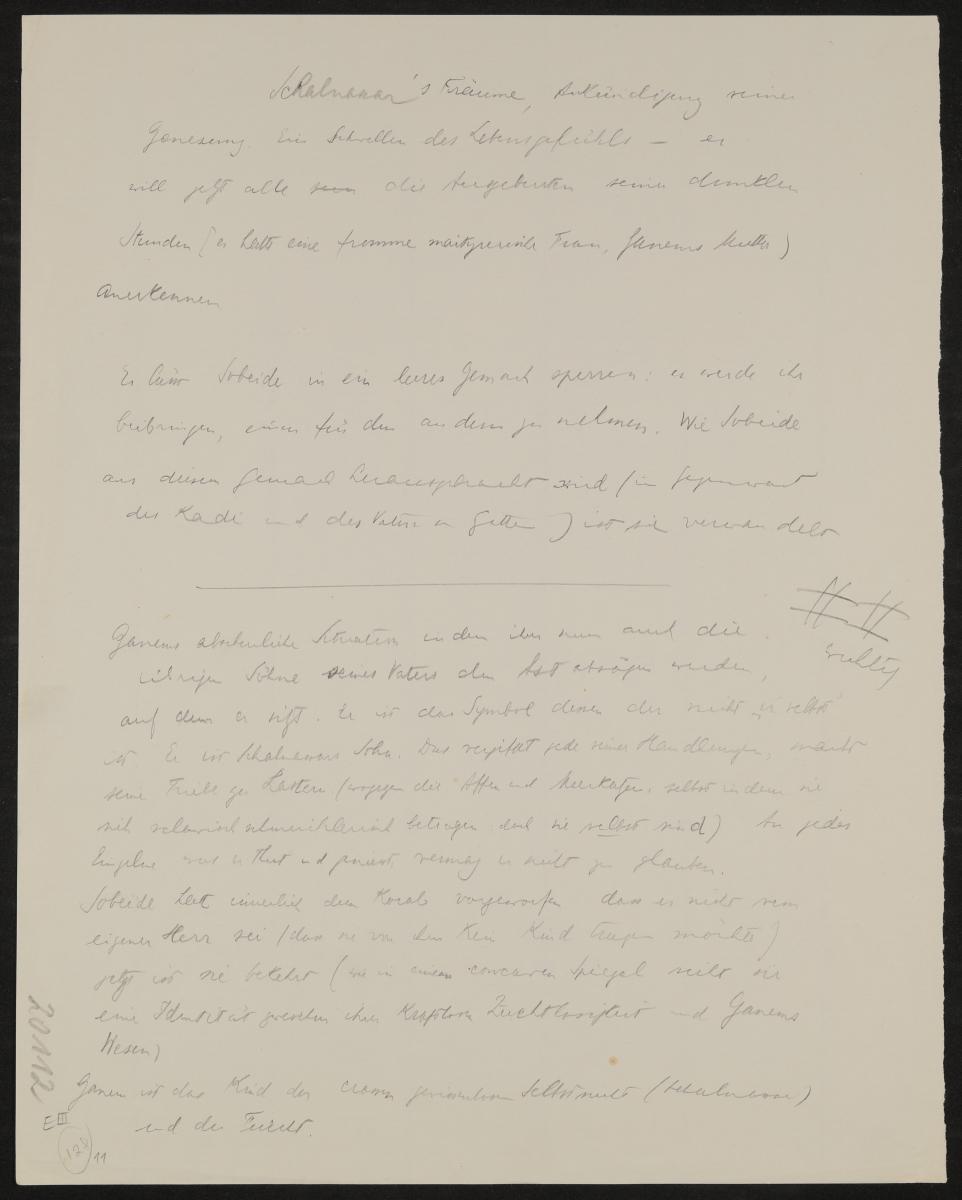 Schalnassar's Träume, Ankündigung seiner
Genesung. Ein Schwellen des Lebensgefühls – er
will jetzt alle die Ausgeburten seiner dunklen
Stunden (er hatte eine fromme märtyrerische Frau, Ganems Mutter)
anerkennen
Er lässt Sobeide in ein leeres Gemach sperren: er werde ihr
beibringen, einen für den andern zu nehmen. Wie Sobeide
aus diesem Gemach herausgebracht wird (in Gegenwart
des Kadi und des Vaters u Gatten) ist sie verwandelt
wichtig
Ganems abscheuliche Situation indem ihm nun auch die
übrigen Söhne seines Vaters den Ast absägen werden,
auf dem er sitzt. Er ist das Symbol dessen der nicht "er selbst"
ist. Er ist Schalnassars Sohn. Das vergiftet jede seiner Handlungen, macht
seine Triebe zu Lastern (wogegen die Affen und Meerkatzen, selbst indem sie
sich sclavisch schmeichlerisch betragen doch sie selbst sind) An jedes
Einzelne was er thut und geniesst, vermag er nicht zu glauben.
Sobeide hatte innerlich dem Kosab vorgeworfen dass er nicht sein
eigener Herr sei (dass sie von ihm kein Kind tragen möchte)
jetzt ist sie bekehrt (wie in einem concaven Spiegel sieht sie
eine Identität zwischen ihrer Zuchtlosigkeit und Ganems
Wesen)
Ganem ist das Kind der crassen gewissenlosen Selbstsucht (Schalnassar)
und der Furcht.
20112
E III
128
11